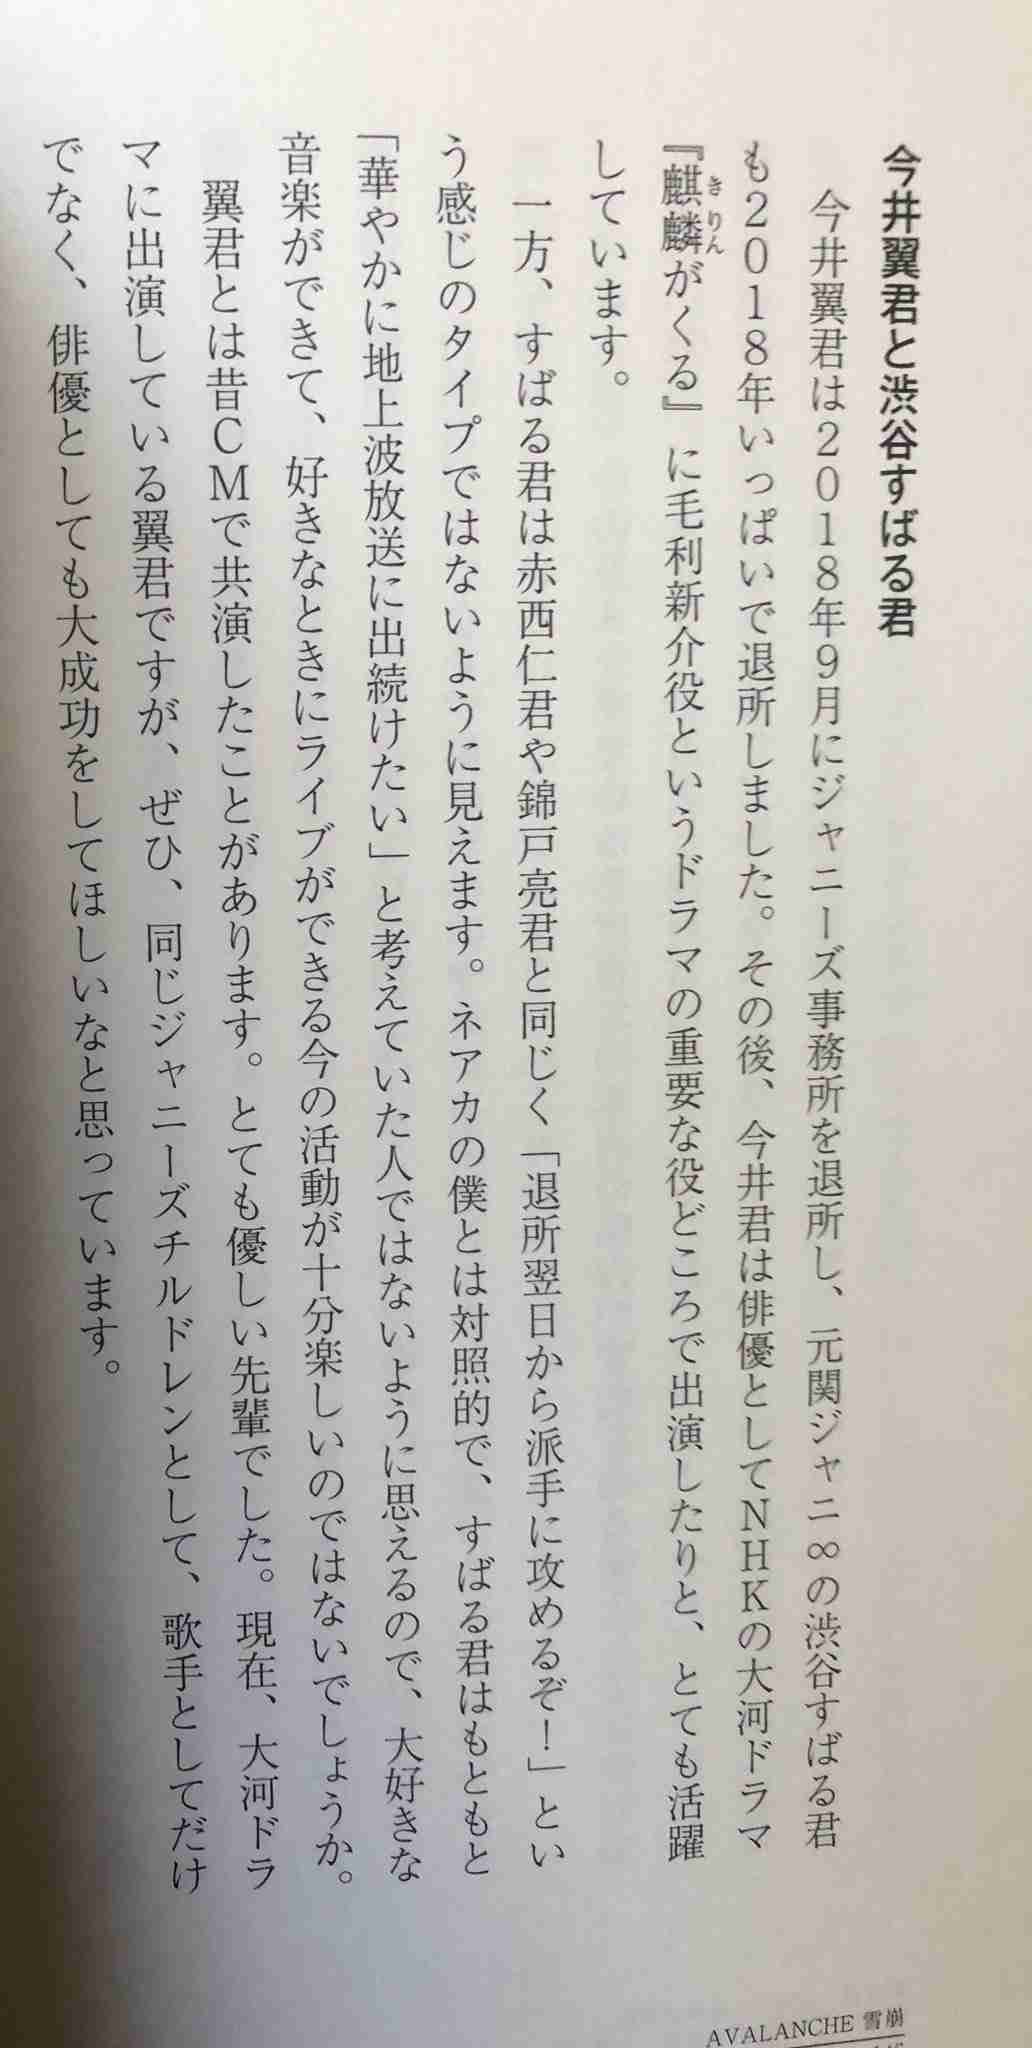 今井翼君と渋谷すばる君
今井翼君は2018年9月にジャニーズ事務所を退所し、元関ジャニ∞の渋谷すばる君
も2018年いっぱいで退所しました。その後、今井君は俳優としてNHKの大河ドラマ
『麒麟がくる』に毛利新介役というドラマの重要な役どころで出演したりと、とても活躍
きりん
しています。
一方、すばる君は赤西仁君や錦戸亮君と同じく「退所翌日から派手に攻めるぞ！」とい
う感じのタイプではないように見えます。ネアカの僕とは対照的で、すばる君はもともと
「華やかに地上波放送に出続けたい」と考えていた人ではないように思えるので、大好きな
音楽ができて、好きなときにライブができる今の活動が十分楽しいのではないでしょうか。
翼君とは昔CMで共演したことがあります。とても優しい先輩でした。現在、大河ドラ
マに出演している翼君ですが、ぜひ、同じジャニーズチルドレンとして、歌手としてだけ
でなく、俳優としても大成功をしてほしいなと思っています。
AVALANCHE 雪崩